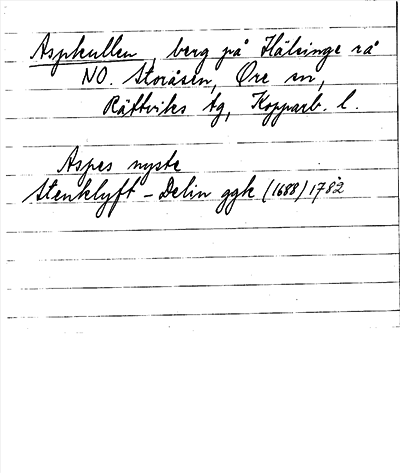 Aspkullen, berg på Hälsinge rå
NO. Storåsen, Ore sn,
Rättviks tg, Kopparb. l.
Aspes nyste
Stenklyft – Delin ggk (1688) 1782